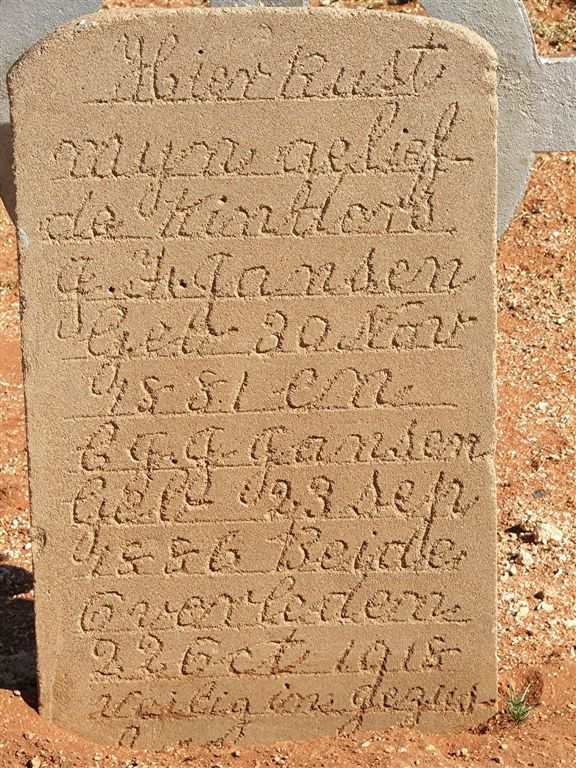 Hier Rust
myn gelief-
de Kinders
J. J. Jansen
Geb 20 Nov
1881 en
C J J Jansen
Geb 23 Sep
1886 Beide
Overleden
22 Oct 1918
veilig in Jezus